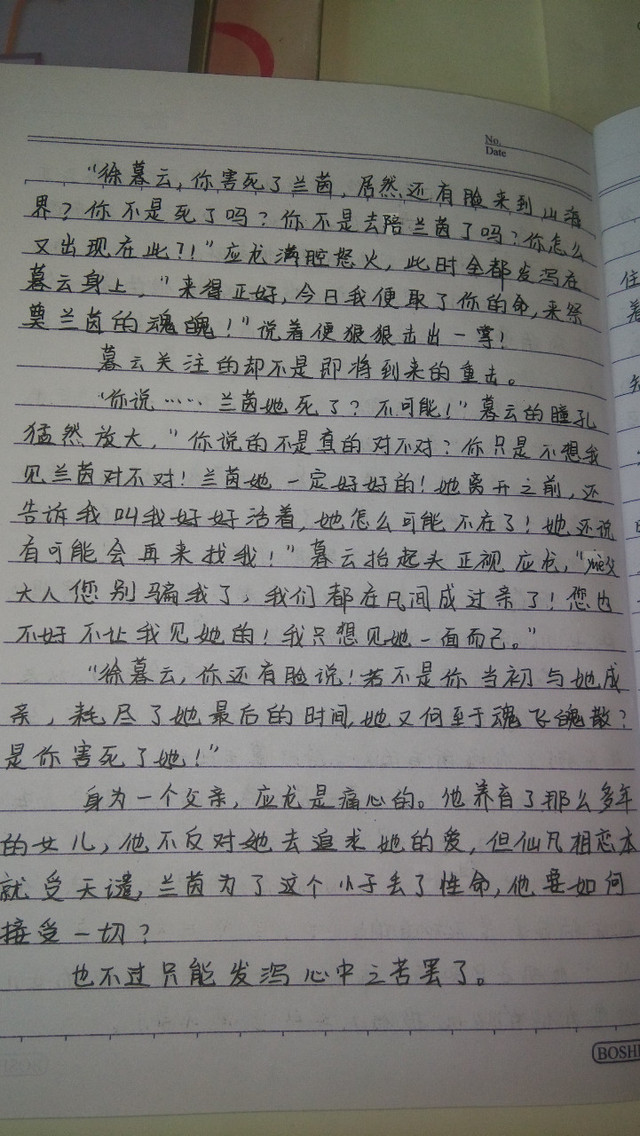 No.
Date
"徐暮云,你害死了兰茵,居然还有脸来到山海
界?你不是死了吗?你不是去陪兰茵了吗?你怎么
又出现在此?!"应龙满腔怒火,此时全都发泻在
暮云身上,"来得正好,今日我便取了你的命,来祭
奠兰茵的魂魄!"说着便狠狠击出一掌!
暮云关注的却不是即将到来的重击。
"你说……兰茵她死了?不可能!"暮云的瞳孔
猛然放大,"你说的不是真的对不对?你只是不想我
见兰茵对不对!兰茵她一定好好的!她离开之前,还
告诉我叫我好好活着,她怎么可能不在了!她还说
有可能会再来找我!"暮云抬起头正视应龙,"
大人您别骗我了,我们都在凡间成过亲了!您也
不好不让我见她的!我只想见她一面而已。"
"徐暮云,你还有脸说!若不是你当初与她成
亲,耗尽了她最后的时间,她又何至于魂飞魄散?
是你害死了她!"
身为一个父亲,应龙是痛心的。他养育了那么多年
的女儿,他不反对她去追求她的爱,但仙凡相恋本
就受天谴,兰茵为了这个小子丢了性命,他要如何
接受一切?
也不过只能发泻心中之苦罢了。
住
BOSHI